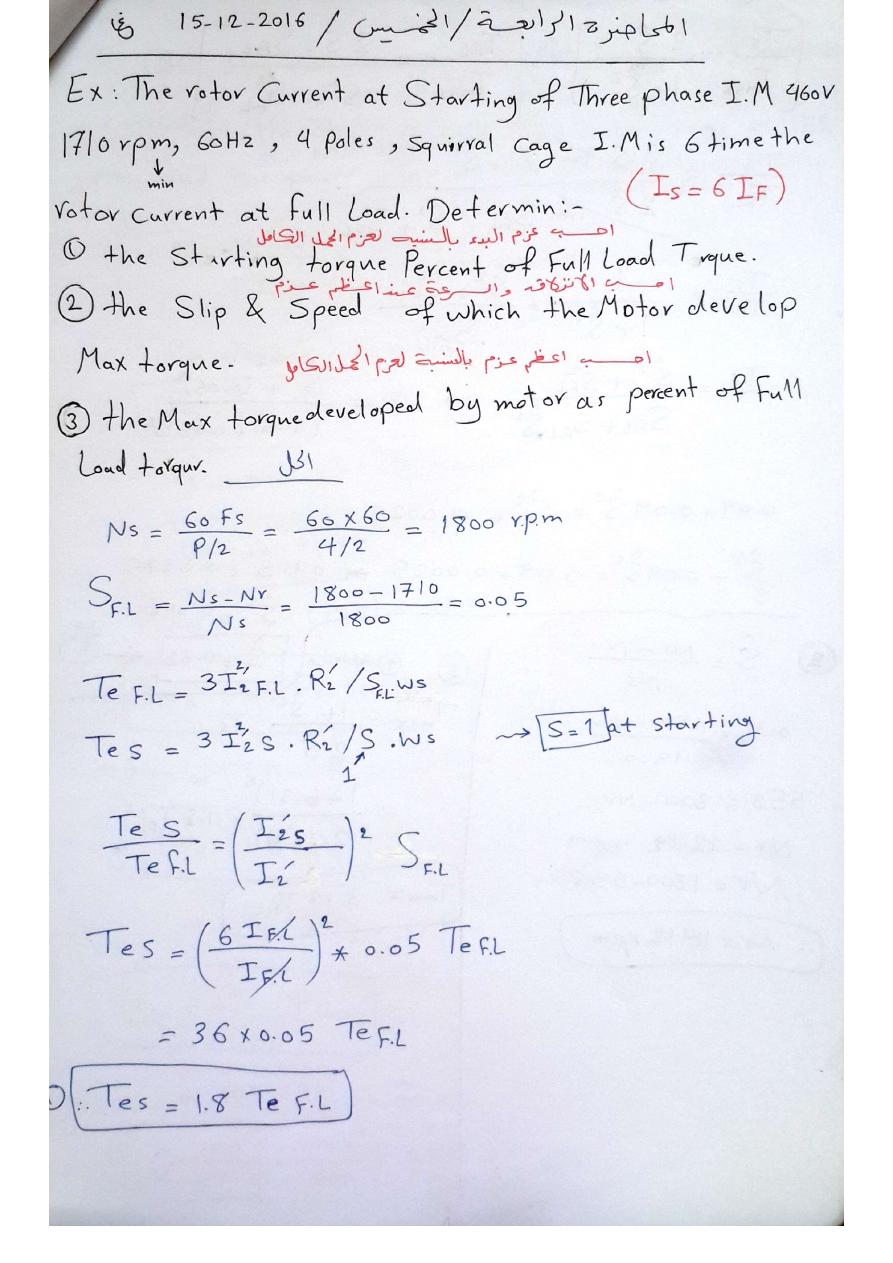 المحاضرة الرابعة / الخميس / 15-12-2016
Ex: The rotor Current at Starting of Three phase I.M 460V
1710 rpm, 60HZ , 4 Poles , Squirral Cage I.M is 6 time the
↓
min
(Is = 6 IF)
rotor current at full Load. Determin:-
احسب عزم البدء بالنسبة لعزم الحمل الكامل
① the Starting torque Percent of Full Load Trque.
احسب الانزلاق والسرعة عند اعظم عزم
② the Slip & Speed of which the Motor develop
Max torque. احسب اعظم عزم بالنسبة لعزم الحمل الكامل
③ the Max torque developed by motor as percent of Full
Load torqur. الحل
Ns = 60 Fs / P/2 = 60 x 60 / 4/2 = 1800 r.p.m
S F.L = Ns - Nr / Ns = 1800 - 1710 / 1800 = 0.05
Te F.L = 3 I₂'² F.L . R₂' / S F.L . ws
Te s = 3 I₂'² s . R₂' / S . ws → S = 1 at starting
1
Te s / Te f.L = ( I₂'s / I₂' )² S F.L
Te s = ( 6 I F.L / I F.L )² * 0.05 Te F.L
= 36 x 0.05 Te F.L
∴ Tes = 1.8 Te F.L